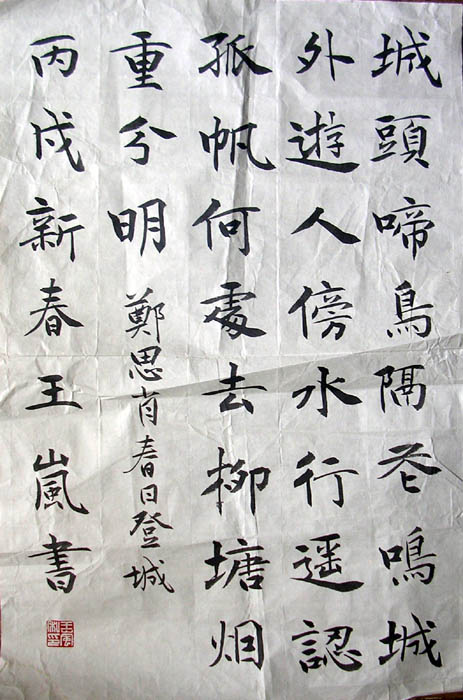 城頭啼鳥隔花鳴城
外遊人傍水行遥認
孤帆何處去柳塘烟
重分明 鄭思肖春日登城
丙戌新春王嵐書